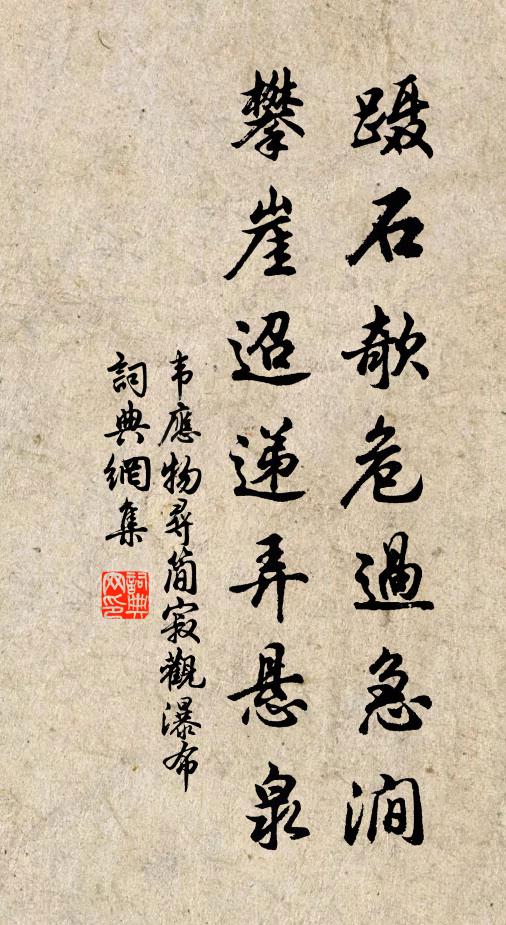 蹑石欹危過急澗
攀崖迢递弄悬泉
韦應物尋简寂觀瀑布
詞典網集
詞典
网印